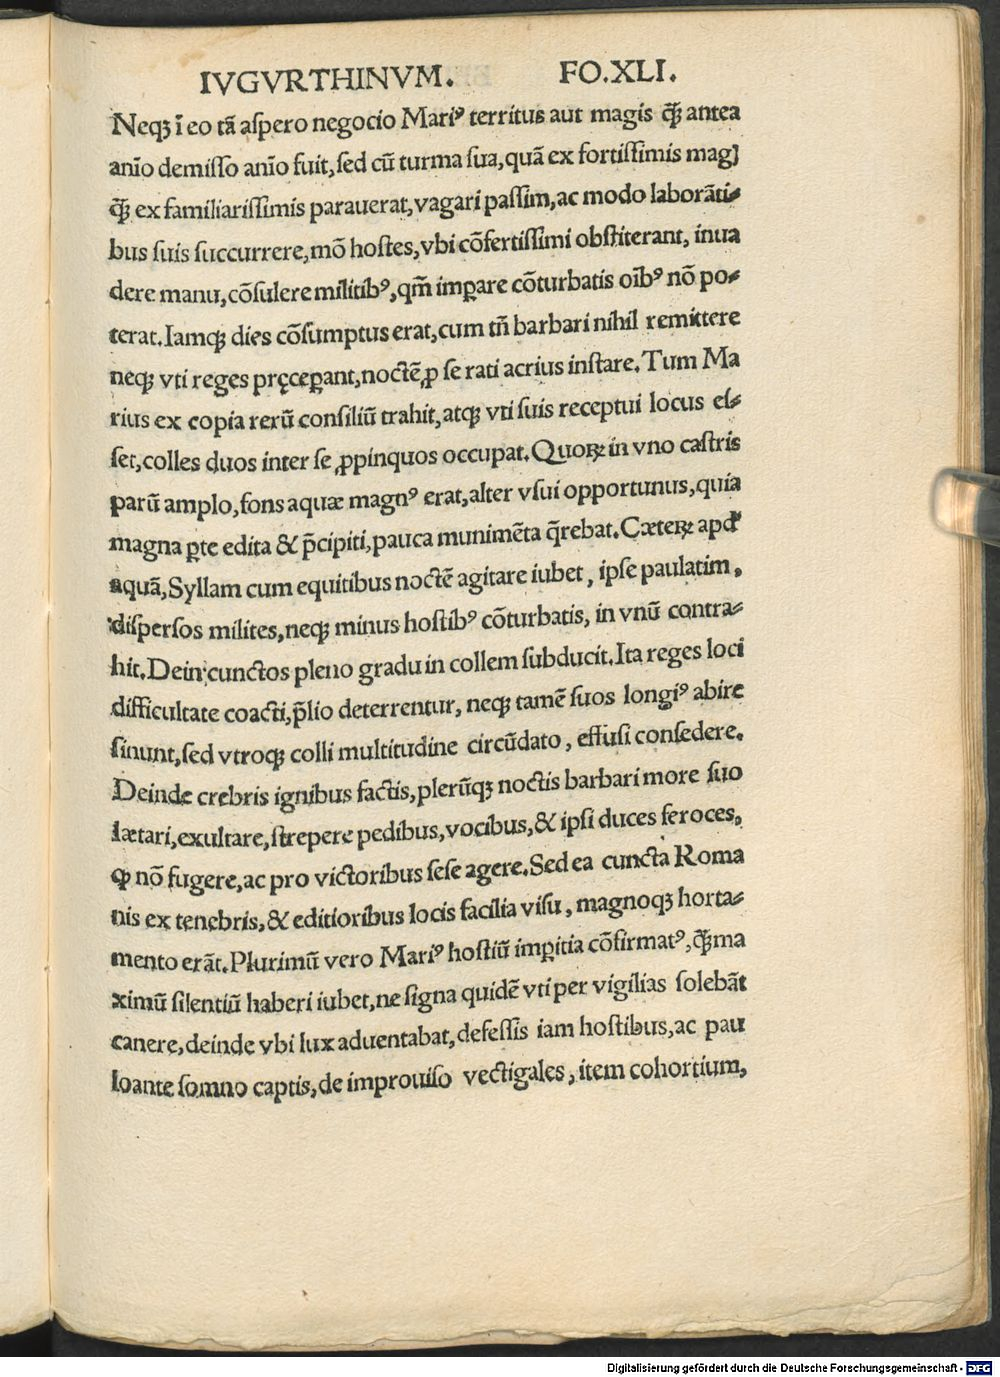 IVGVRTHINVM. FO.XLI.
Neqꝫ ĩ eo tã aſpero negocio Mariꝰ territus aut magis q̃ꝫ antea
anĩo demiſſo anĩo fuit, ſed cũ turma ſua, quã ex fortiſſimis mag)
q̃ꝫ ex familiariſſimis parauerat, vagari paſſim, ac modo laborãti⸗
bus ſuis ſuccurrere, mõ hoſtes, vbi cõfertiſſimi obſtiterant, inua
dere manu, cõſulere militibꝰ, qm̃ imꝑare cõturbatis oĩbꝰ nõ po⸗
terat. Iamqꝫ dies cõſumptus erat, cum tñ barbari nihil remittere
neqꝫ vti reges pręceꝑant, noctẽ ꝓ ſe rati acrius inſtare. Tum Ma
rius ex copia rerũ conſiliũ trahit, atqꝫ vti ſuis receptui locus eſ⸗
ſet, colles duos inter ſe ꝓpinquos occupat. Quoꝝ in vno caſtris
parũ amplo, fons aquæ magnꝰ erat, alter vſui opportunus, quia
magna ꝑte edita & p̃cipiti, pauca munimẽta q̃rebat. Cæteꝝ apđ
aquã, Syllam cum equitibus noctẽ agitare iubet, ipſe paulatim,
diſperſos milites, neqꝫ minus hoſtibꝰ cõturbatis, in vnũ contra⸗
hit. Dein cunctos pleno gradu in collem ſubducit. Ita reges loci
difficultate coacti, p̃lio deterrentur, neqꝫ tamẽ ſuos longiꝰ abire
ſinunt, ſed vtroqꝫ colli multitudine circũdato, effuſi conſedere.
Deinde crebris ignibus factis, plerũqꝫ noctis barbari more ſuo
lætari, exultare, ſtrepere pedibus, vocibus, & ipſi duces feroces,
ꝙ nõ fugere, ac pro victoribus ſeſe agere. Sed ea cuncta Roma
nis ex tenebris, & editioribus locis facilia viſu, magnoqꝫ horta⸗
mento erãt. Plurimũ vero Mariꝰ hoſtiũ imꝑitia cõfirmatꝰ, q̃ꝫ ma
ximũ ſilentiũ haberi iubet, ne ſigna quidẽ vti per vigilias ſolebãt
canere, deinde vbi lux aduentabat, defeſſis iam hoſtibus, ac pau
loante ſomno captis, de improuiſo vectigales, item cohortium,
Digitalisierung gefördert durch die Deutsche Forschungsgemeinschaft - DFG